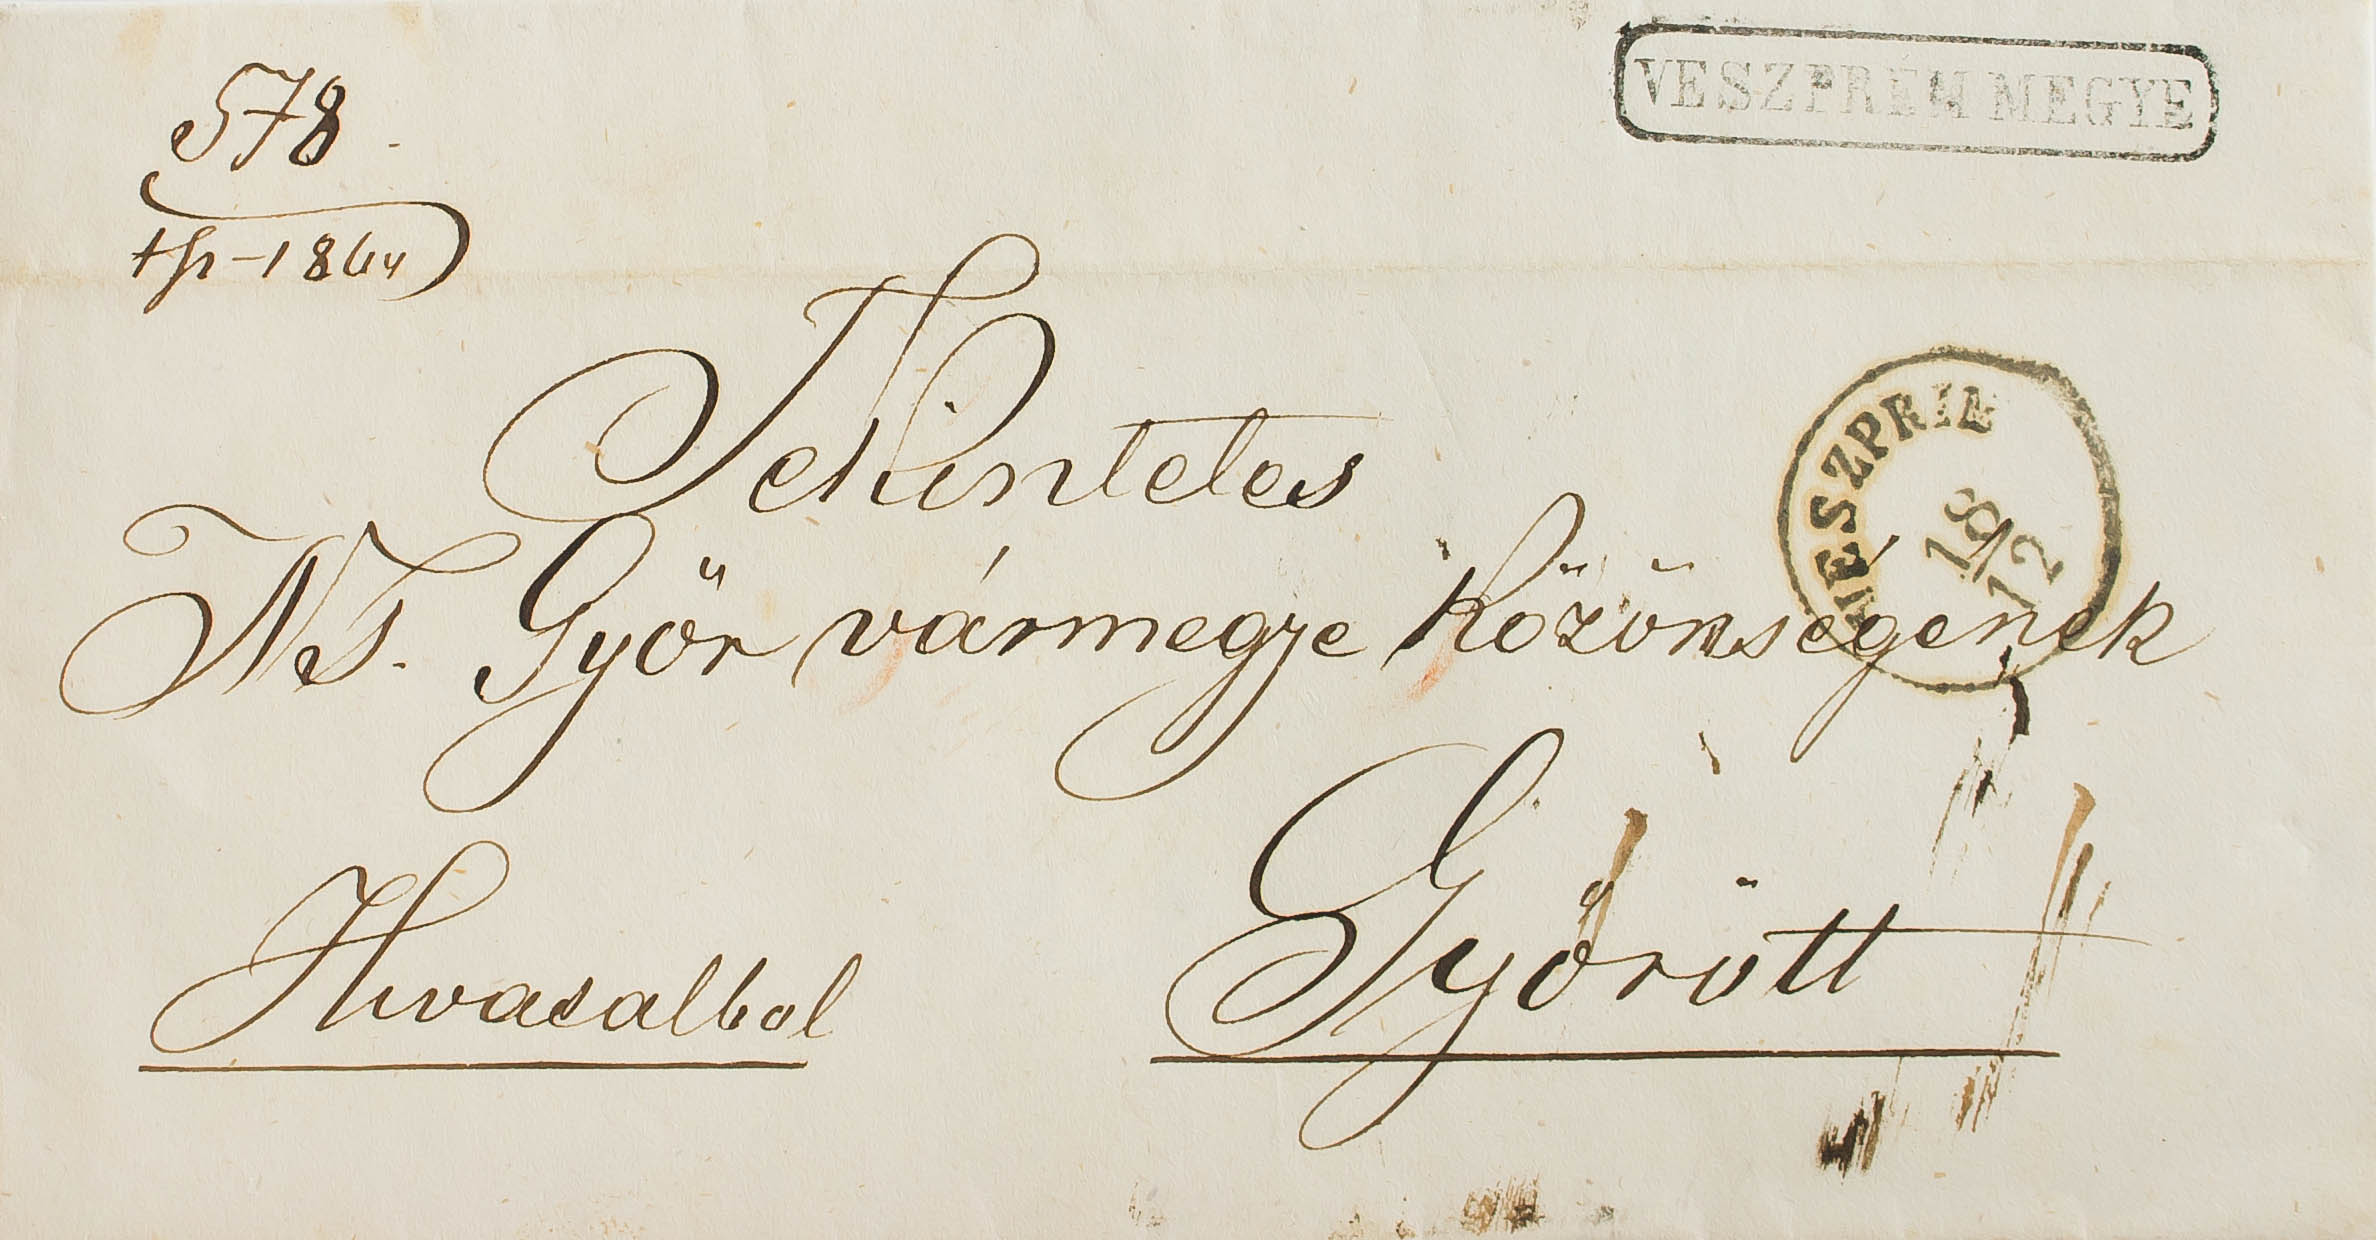 578
VESZPRÉM MEGYE
1864
Tekintetes
WESZPRIM
18/12
Ns. Győr vármegye Közönségének
Győrött
Hivatalból